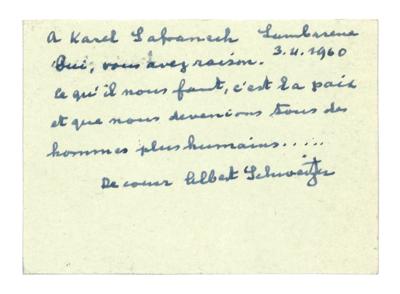 A Karel Lambarene
3.4.1960
Oui, vous avez raison.
ce qu'il nous faut, c'est la paix
et que nous devenions tous des
hommes plus humains.....
De coeur Albert Schweitzer